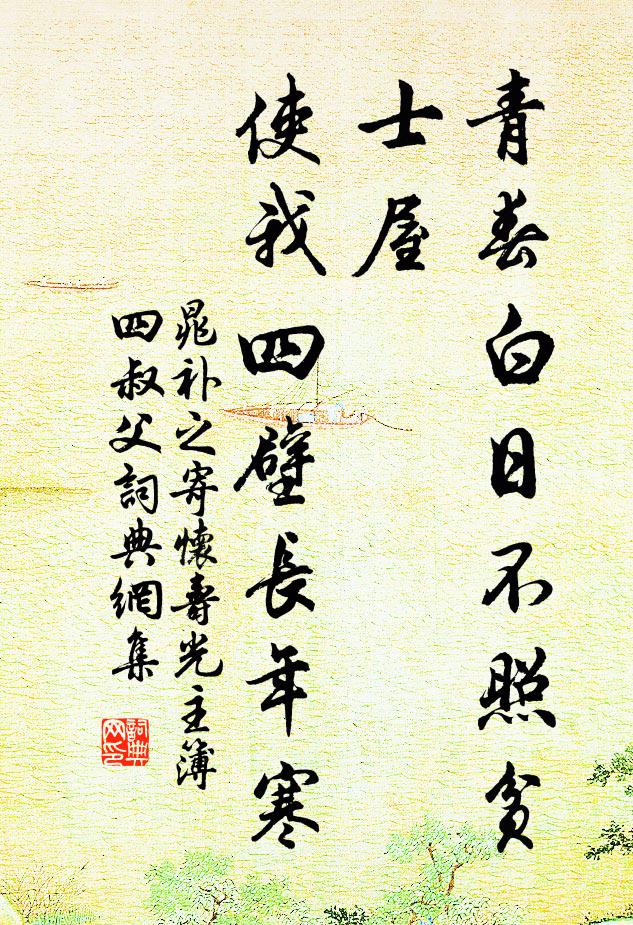 青春白日不照貧
士屋
使我四壁長年寒
晁補之寄懷壽光主簿
四叔父詞典網集
詞典
网印